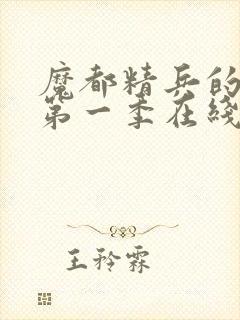 魔都精兵的
第一季在线
王矜霖